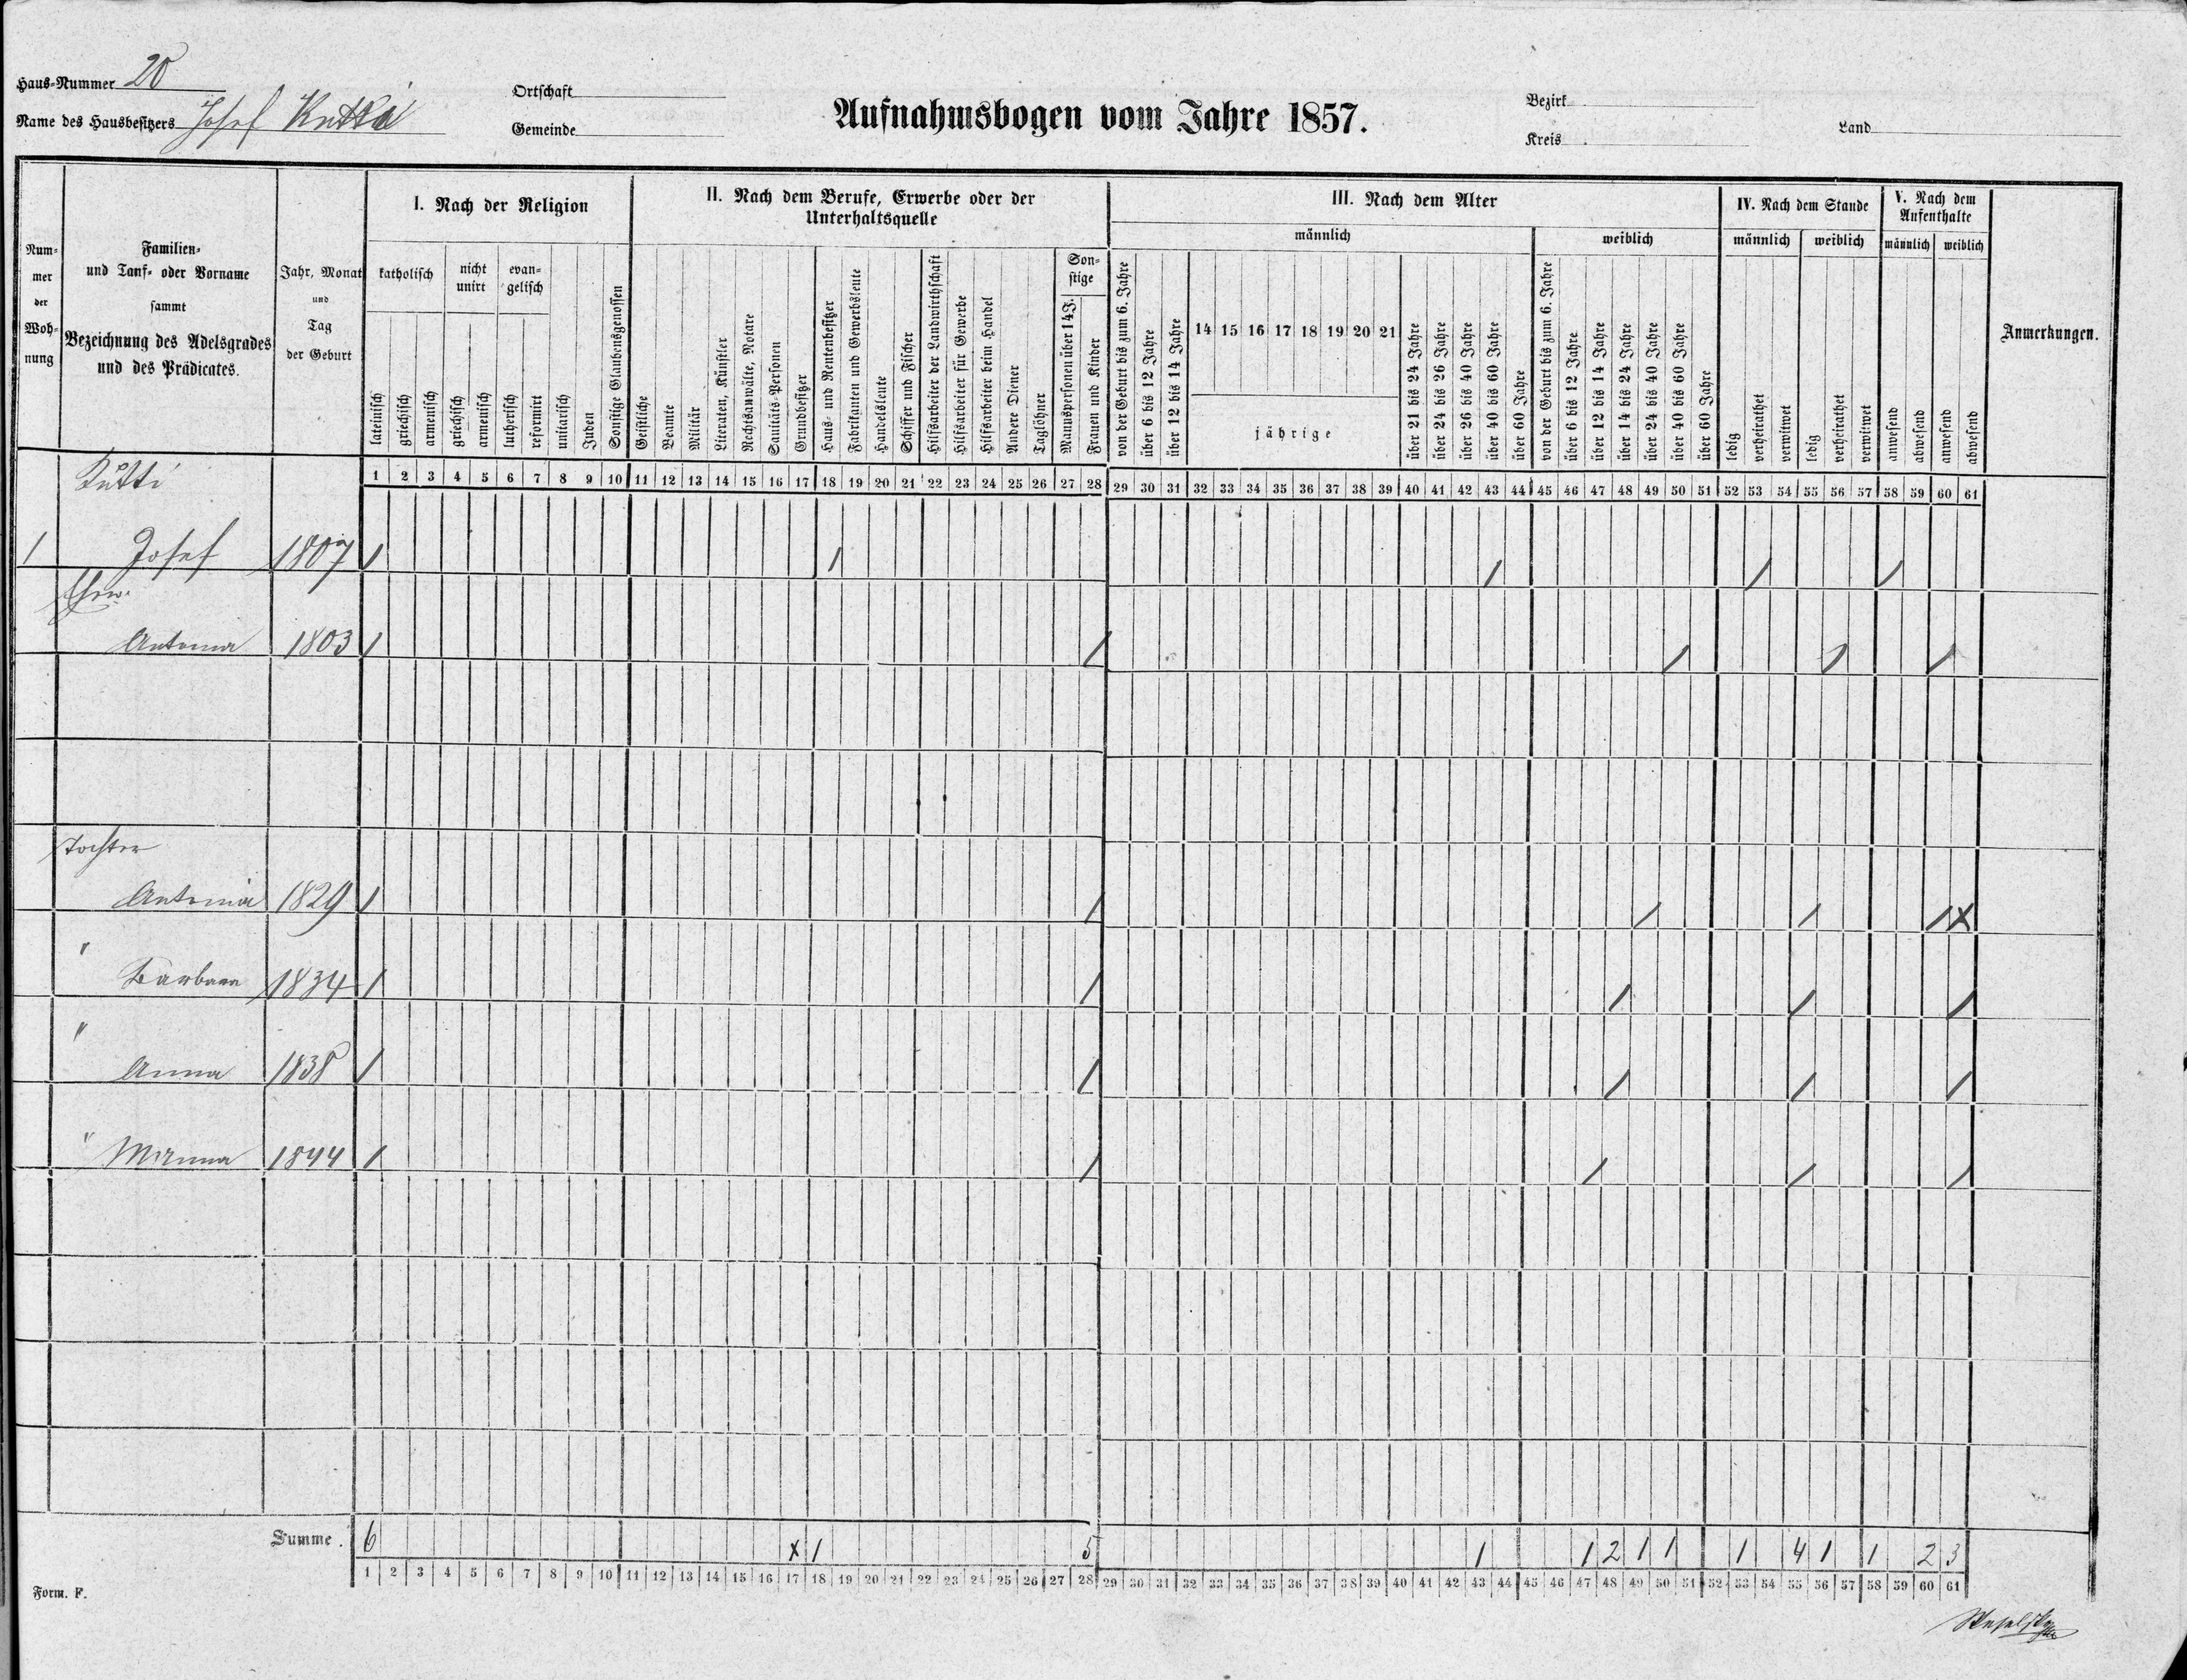 Haus-Nummer 20
Name des Hausbesitzers Josef Kutka
Ortschaft
Gemeinde
Aufnahmsbogen vom Jahre 1857.
Bezirk
Kreis
Land
Num-
mer
der
Woh-
nung
Familien-
und Tauf- oder Vorname
sammt
Bezeichnung des Adelsgrades
und des Prädicates.
Jahr, Monat
und
Tag
der Geburt
I. Nach der Religion
katholisch
nicht
unirt
evan-
gelisch
lateinisch
griechisch
armenisch
griechisch
armenisch
lutherisch
reformirt
unitarisch
Juden
Sonstige Glaubensgenossen
II. Nach dem Berufe, Erwerbe oder der
Unterhaltsquelle
Geistliche
Beamte
Militär
Literaten, Künstler
Rechtsanwälte, Notare
Sanitäts-Personen
Grundbesitzer
Haus- und Rentenbesitzer
Fabrikanten und Gewerbsleute
Handelsleute
Schiffer und Fischer
Hilfsarbeiter der Landwirthschaft
Hilfsarbeiter für Gewerbe
Hilfsarbeiter beim Handel
Andere Diener
Taglöhner
Son-
stige
Mannspersonen über 14 J.
Frauen und Kinder
III. Nach dem Alter
männlich
von der Geburt bis zum 6. Jahre
über 6 bis 12 Jahre
über 12 bis 14 Jahre
14 15 16 17 18 19 20 21
jährige
über 21 bis 24 Jahre
über 24 bis 26 Jahre
über 26 bis 40 Jahre
über 40 bis 60 Jahre
über 60 Jahre
weiblich
von der Geburt bis zum 6. Jahre
über 6 bis 12 Jahre
über 12 bis 14 Jahre
über 14 bis 24 Jahre
über 24 bis 40 Jahre
über 40 bis 60 Jahre
über 60 Jahre
IV. Nach dem Stande
männlich
weiblich
ledig
verheirathet
verwitwet
ledig
verheirathet
verwitwet
V. Nach dem
Aufenthalte
männlich
weiblich
anwesend
abwesend
anwesend
abwesend
Anmerkungen.
1 2 3 4 5 6 7 8 9 10 11 12 13 14 15 16 17 18 19 20 21 22 23 24 25 26 27 28 29 30 31 32 33 34 35 36 37 38 39 40 41 42 43 44 45 46 47 48 49 50 51 52 53 54 55 56 57 58 59 60 61
1 Josef 1807 1 1 1 1 1
Antonia 1803 1 1 1 1 1
Tochter
Antonia 1829 1 1 1 1 1 X
"
Barbara 1834 1 1 1 1 1
"
Anna 1838 1 1 1 1 1
" 1844 1 1 1 1 1
Summe. 6 x 1 5 1 1 2 1 1 1 4 1 1 2 3
1 2 3 4 5 6 7 8 9 10 11 12 13 14 15 16 17 18 19 20 21 22 23 24 25 26 27 28 29 30 31 32 33 34 35 36 37 38 39 40 41 42 43 44 45 46 47 48 49 50 51 52 53 54 55 56 57 58 59 60 61
Form. F.